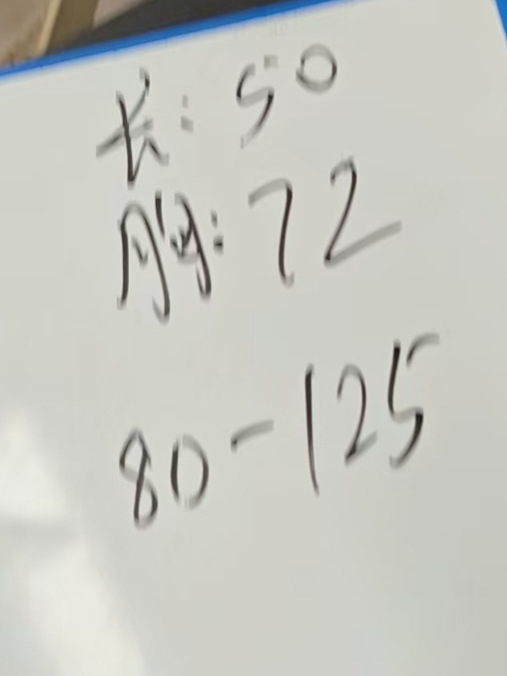 长: 50
胸: 72
80-125